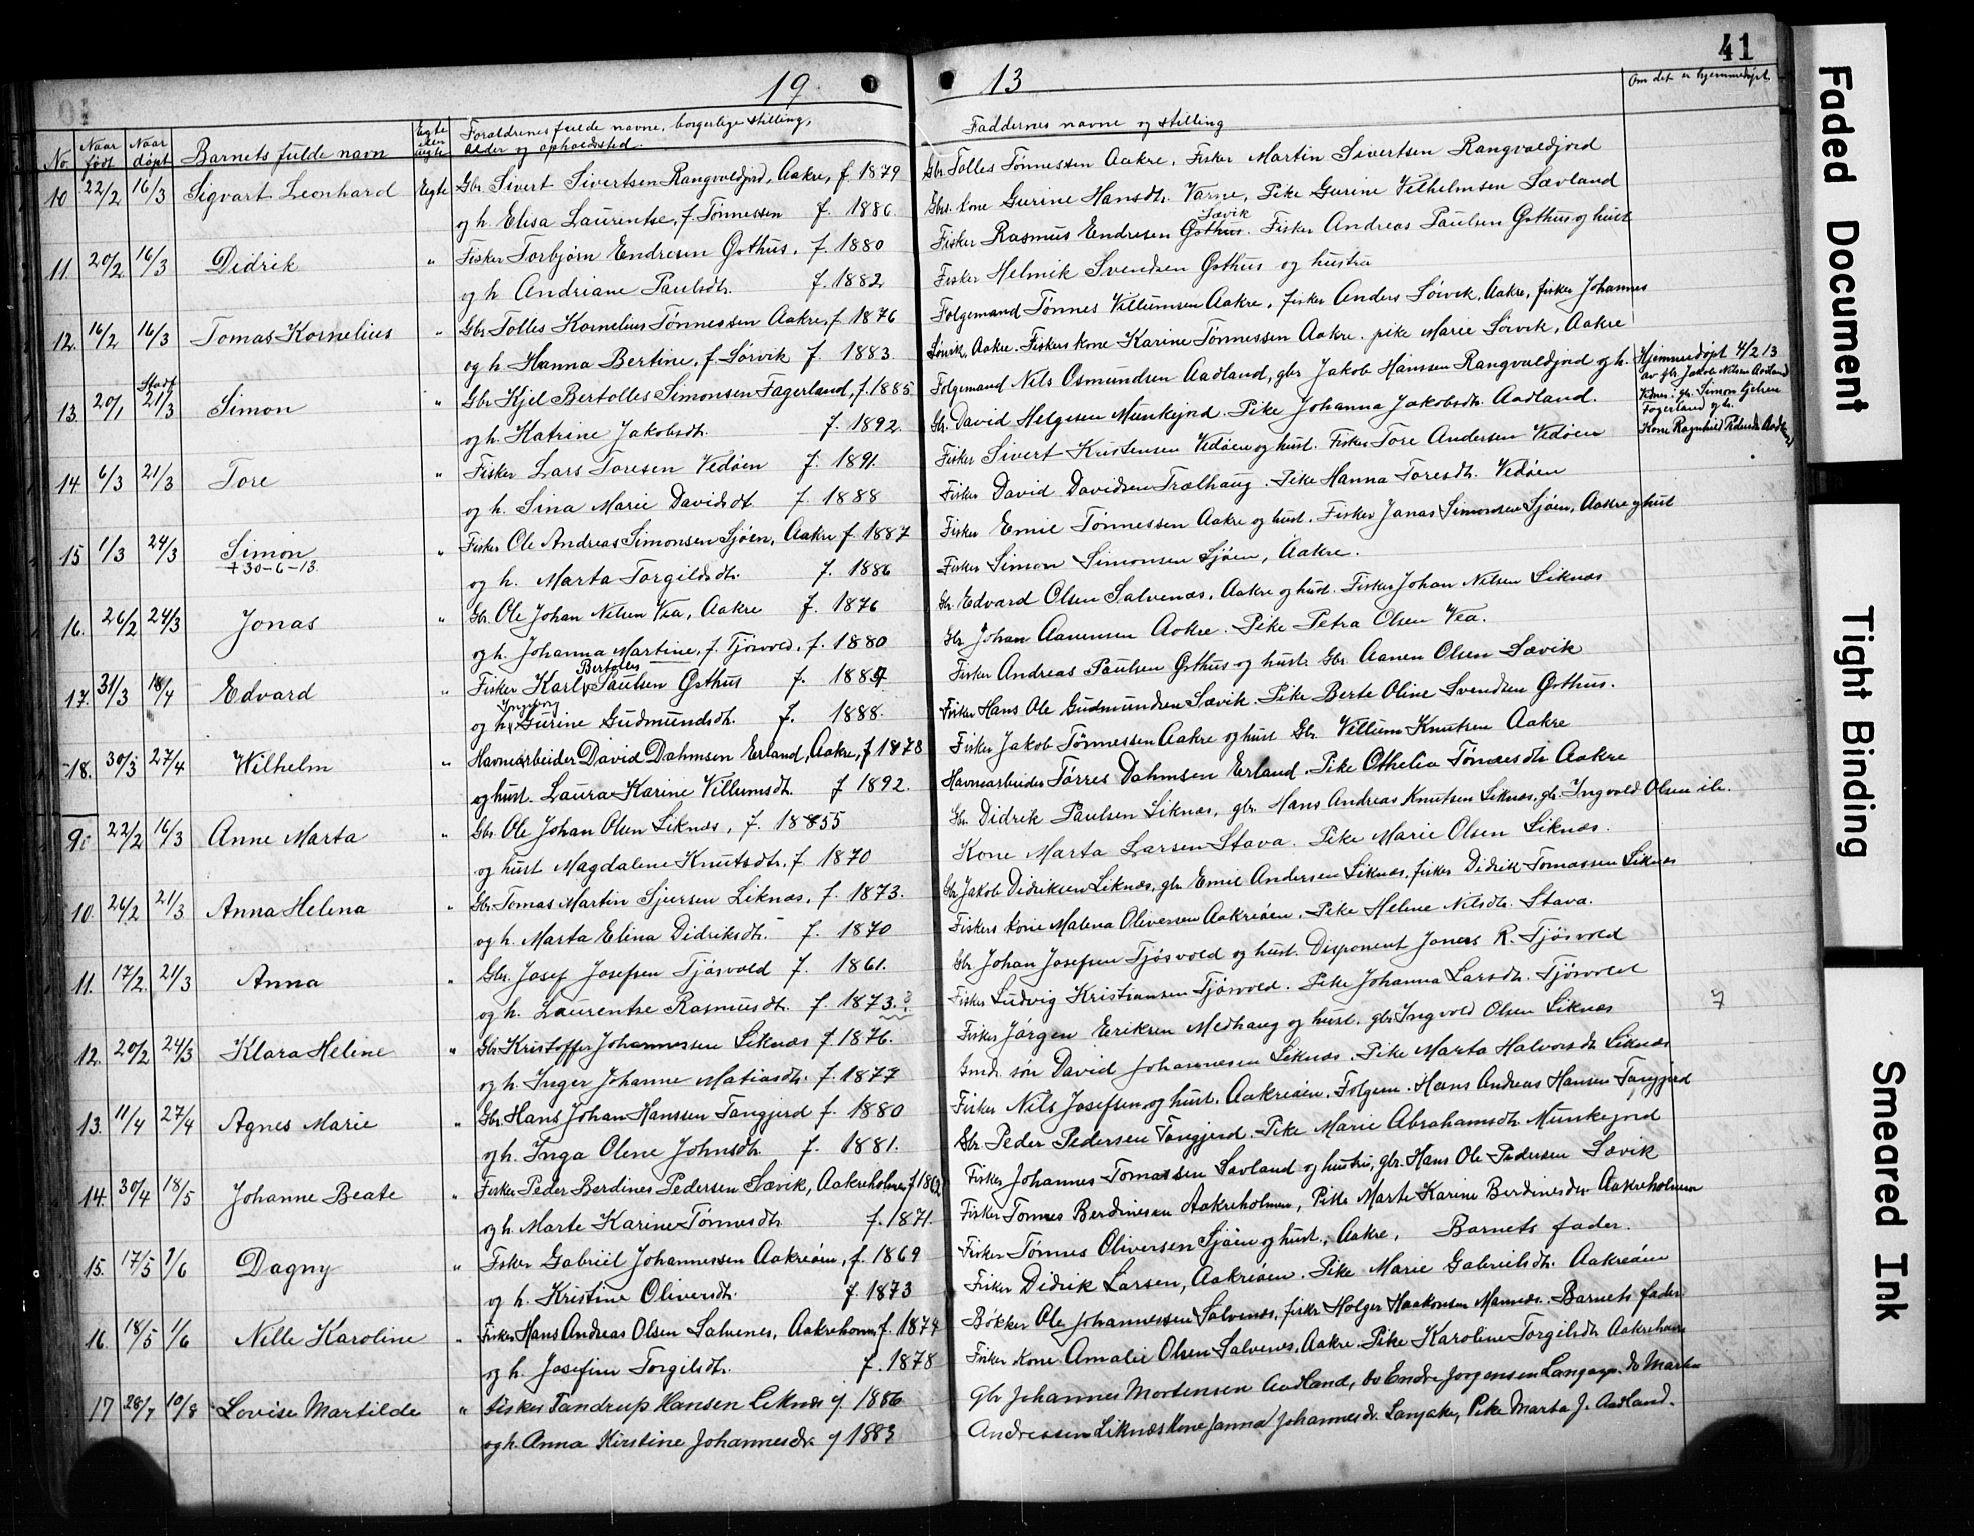 41
19 13
No.
Naar født
Naar døpt
Barnets fulde navn
Egte eller uegte
Forældrenes fulde navne, borgerlige stilling,
alder og opholdssted.
Faddernes navne og stilling
Om det er hjemmedøpt.
10 22/2 16/3 Sigvart Leonhard Egte Gbr. Sivert Sivertsen Rangvaldjord, Aakre, f. 1879 Gbr. Tolles Tønnessen Aakre, Fisker Martin Sivertsen Rangvaldjord
og h. Elisa Laurentse, f. Tønnessen f. 1886. Gbrs. kone Gurine Hansdt. Varne, Pike Gurine Vilhelmsen Sævland
11. 20/2 16/3 Didrik " Fisker Torbjørn Endresen Østhus, f. 1880 Fisker Rasmus Endresen Østhus Sævik. Fisker Andreas Paulsen Østhus og hust
og h. Andriane Paulsdt. f. 1882 Fisker Helmik Svendsen Østhus og hustru
12. 16/2 16/3 Tomas Kornelius " Gbr. Tolles Kornelius Tønnessen Aakre, f. 1876 Følgemand Tønnes Villumsen Aakre, fisker Anders Sørvik, Aakre, fisker Johannes
og h. Hanna Bertine, f. Sørvik f. 1883. Sørvik, Aakre. Fiskers kone Karine Tønnessen Aakre. pike Marie Sørvik, Aakre
13. 20/1 Stadf 21/3 Simon " Gbr. Kjel Bertolles Simonsen Fagerland, f. 1885 Følgemand Nils Osmundsen Aadland, gbr Jakob Hansen Rangvaldjord og h. Hjemmedøpt 4/2 13
av gbr. Jakob Nilsen Aadland
Vidner: gr. Simon Gjelsen
Fagerland og h.
Kone Ragnhild Pedersdt. Aadland
og h. Katrine Jakobsdt. f. 1892. Gbr. David Helgesen Munkejord. Pike Johanna Jakobsdt. Aadland.
14. 6/3 21/3 Tore " Fisker Lars Toresen Vedøen f. 1891. Fisker Sivert Kristensen Vedøen og hust. Fisker Tore Andersen Vedøen
og h. Sina Marie Davidsdt f. 1888 Fisker David Davidsen Trælhaug. Pike Hanna Toresdt. Vedøen
15 1/3 24/3 Simon " Fisker Ole Andreas Simonsen Sjøen, Aakre f. 1887 Fisker Emil Tønnessen Aakre og hust. Fisker Janas Simonsen Sjøen, Aakre og hust
+ 30-6-13.
og h. Marta Torgildsdt. f. 1886 Fisker Simon Simonsen Sjøen, Aakre.
16. 26/2 24/3 Jonas " Gbr. Ole Johan Nilsen Vea, Aakre f. 1876 Gbr. Edvard Olsen Salvenæs, Aakre og hust. Fisker Johan Nilsen Liknæs
og h. Johanna Martine, f. Tjøsvold, f. 1880 Gbr Johan Aanensen Aakre. Pike Petra Olsen Vea.
17. 31/3 18/4 Edvard " Fisker Karl Bertoles Paulsen Østhus f. 1887 Fisker Andreas Paulsen Østhus og hust. Gbr Aanen Olsen Sævik
og h. Ingeborg Gurine Gudmundsdt. f. 1888. Fisker Hans Ole Gudmundsen Sævik. Pike Berte Oline Svendsen Østhus.
18. 30/3 27/4 Wilhelm " Havnearbeider David Dahmsen Erland, Aakre, f 1878 Fisker Jakob Tønnessen Aakre og hust Gbr. Villum Knutsen Aakre
og hust. Laura Karine Villumsdt. f 1892. Havnearbeider Tørres Dahmsen Erland. Pike Othelia Tønnesdt. Aakre
9. 22/2 16/3 Anne Marta " Gbr. Ole Johan Olsen Liknæs, f. 1855 Gbr. Didrik Paulsen Liknæs, gbr. Hans Andreas Knutsen Liknæs, gbr. Ingvald Olsen ib.
og hust Magdalene Knutsdt. f 1870 Kone Marta Larsen Stava. Pike Marie Olsen Liknæs.
10. 26/2 21/3 Anna Helena " Gbr. Tomas Martin Sjursen Liknæs, f. 1873. Gbr Jakob Didriksen Liknæs, gbr Emil Andersen Liknæs, fisker Didrik Tomassen Liknæs
og h. Marta Elina Didriksdt. f. 1870 Fiskers kone Malena Oliversen Aakreøen. Pike Helene Nilsdt. Stava.
11. 17/2 21/3 Anna " Gbr. Josef Josefsen Tjøsvold f. 1861. Gbr Johan Josefsen Tjøsvold og hust. Disponent Jonas R. Tjøsvold
og h. Laurentse Rasmusdt. f. 1873.? Fisker Ludvig Kristiansen Tjøsvold. Pike Johanna Larsdt. Tjøsvold
12. 20/2 24/3 Klara Heline " Gbr Kristoffer Johannessen Liknæs f 1876. Fisker Jørgen Eriksen Medhaug og hust. gbr Ingvold Olsen Liknæs 7
og h. Inger Johanne Matiasdt. f. 1877 Gmd. søn David Johannesen Liknæs. Pike Marta Halvorsdt. Liknæs
13. 11/4 27/4 Agnes Marie " Gbr. Hans Johan Hanssen Tangjerd f. 1880 Fisker Nils Josefsen og hust. Aakreøen. Følgem. Hans Andreas Hansen Tangjerd
og h. Inga Oline Johnsdt. f. 1881. Gbr. Peder Pedersen Tangjerd. Pike Marie Abrahamsdt. Munkejord
14. 30/4 18/5 Johanne Beate " Fisker Peder Berdines Pedersen Sævik, Aakreholmen, f 1862 Fisker Johannes Tomassen Sævland og hustru, gbr. Hans Ole Pedersen Sævik
og h. Marte Karine Tønnesdt. f. 1871. Fisker Tønnes Berdinesen Aakreholmen, Pike Marte Karine Berdinesdtr Aakreholmen
15. 17/5 1/6 Dagny " Fisker Gabriel Johannessen Aakreøen, f. 1869 Fisker Tønnes Oliversen Sjøen og hust., Aakre, Barnets fader.
og h. Kristine Oliversdt. f. 1873 Fisker Didrik Larsen, Aakreøen. Pike Marie Gabrielsdt. Aakreøen
16. 18/5 1/6 Nille Karoline " Fisker Hans Andreas Olsen Salvenes, Aakrehavn, f. 1874 Bøkker Ole Johannessen Salvenæs, fisker Holger Haakonsen Mannes. Barnets fader
og h. Josefine Torgilsdt. f. 1878 Fisker kone Amalie Olsen Salvenes, Aakre. Pike Karoline Torgilsdt. Aakrehavn
17 28/7 10/8 Lovise Martilde " Fisker Tandrup Hansen Liknæs f 1886 Gbr Johannes Mortensen Aadland, do Endre Jørgensen Langaker. do Martin
og h. Anna Kirstine Johannesdtr f 1883 Andreassen Liknæs Kone Janna Johannesdtr. Langaker, Pike Marta J. Aadland.
Faded Document
Tight Binding
Smeared Ink